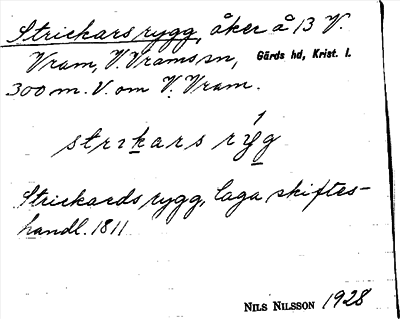 Strickars rygg, åker å 13 V.
Vram, V. Vrams sn, Gärds hd, Krist. l.
300 m. V. om V. Vram.
strıkars rýg
Strickards rygg, laga skiftes-
handl. 1811
NILS NILSSON 1928